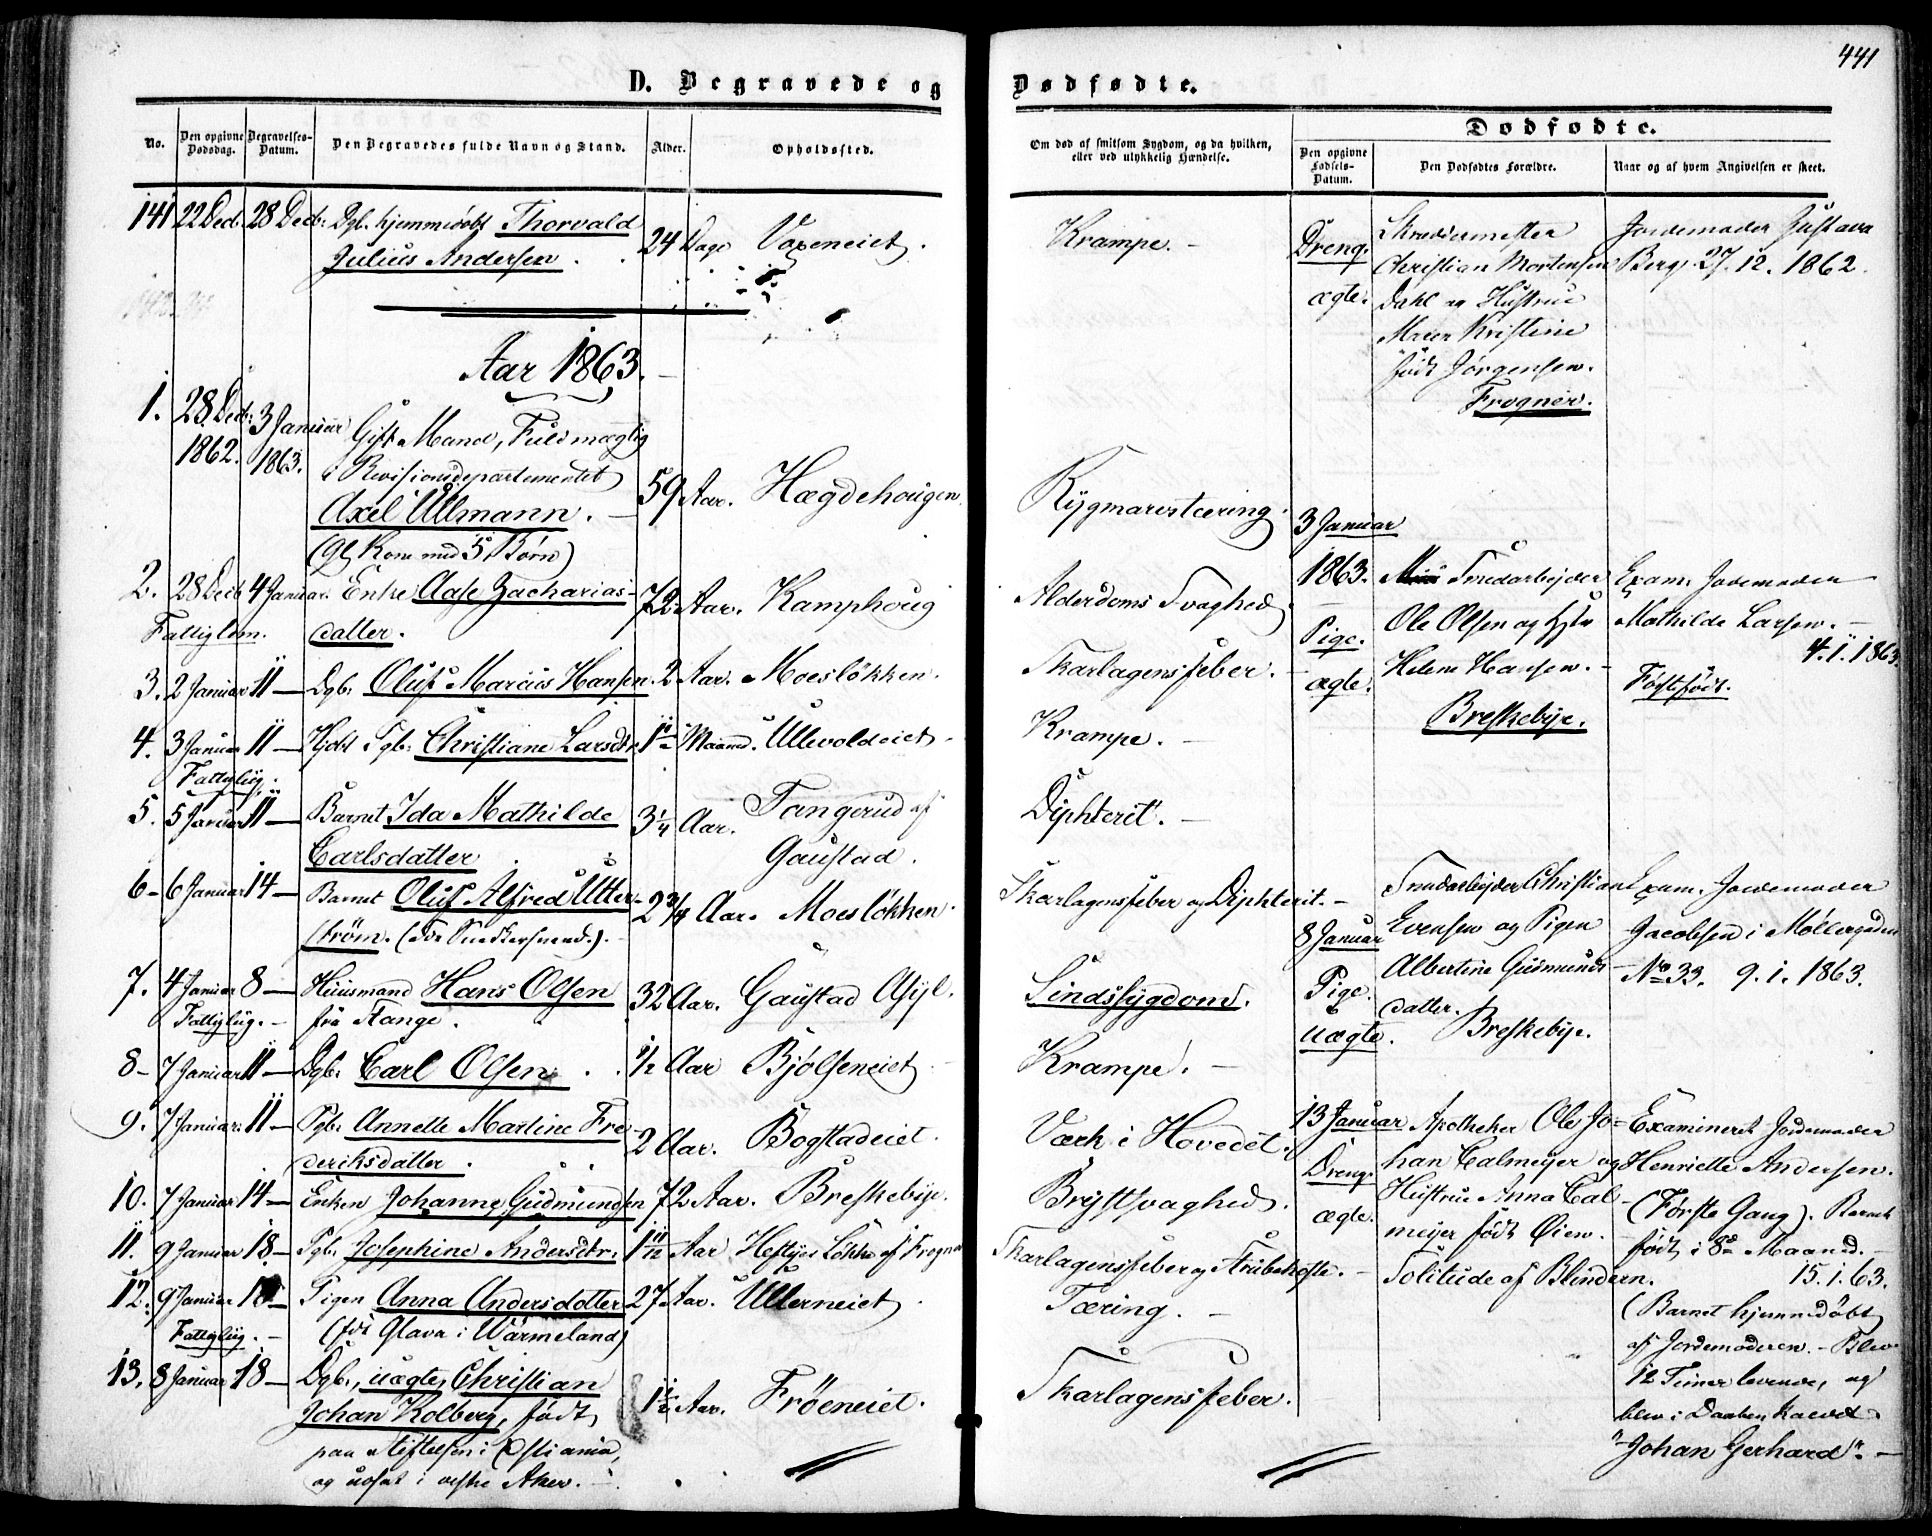 441
D. Begravede og Dødfødte.
No.
Den opgivne Dødsdag.
Begravelses-Datum.
Den Begravedes fulde Navn og Stand.
Alder.
Opholdssted.
Om død af smitsom Sygdom, og da hvilken,
eller ved ulykkelig Hændelse.
Dødfødte.
Den opgivne Fødsels-Datum.
Den Dødfødtes Forældre.
Naar og af hvem Angivelsen er skeet.
141 22 Decb. 28 Decb: Dgb. hjemmedøbt Thorvald
Julius Andersen. 24 Dage Voxeneiet. Krampe. -
Aar 1863.
1. 28 Decb: 3 Januar Gift Mand, Fuldmægtig
1862. 1863. i Revisionsdepartementet
Axel Ullmann. 59 Aar. Hægdehougen. Rygmarvstæring.
(Gl. Kone med 5 Børn)
2. 28 Decb 4 Januar. Enke Aase Zacharias-
Fattiglem. datter. 72 Aar. Kamphoug Alderdoms Svaghed
3. 2 Januar 11 — Dgb. Oluf Marcus Hansen. 2 Aar. Moesløkken. Skarlagensfeber.
4. 3 Januar 11 — Hjdbt Pgb. Christiane Larsdtr. Maaned. Ullevoldeiet. Krampe. -
Fattiglig.
5. 5 Januar 11 — Barnet Ida Mathilde
Carlsdatter 3 1/4 Aar. Tangerud af
Gaustad. Diphterit. -
6 - 6 Januar 14 — Barnet Oluf Alfred Utter-
strøm. 2 3/4 Aar. Moesløkken. Skarlagensfeber og Diphterit. -
7. 4 Januar 8 — Huusmand Hans Olsen
Fattiglig. - fra Stange. 32 Aar. Gaustad Asyl. Sindssygdom.
8 - 7 Januar 11 — Dgb. Carl Olsen. 1/2 Aar Bjølseneiet Krampe. -
9. 7 Januar 11 — Pgb. Annette Martine Fre-
deriksdatter. 2 Aar. Bogstadeiet. Værk i Hovedet.
10. 7 Januar 14 — Enken Johanne Gudmundsen 72 Aar. Breskebye. Brystsvaghed.
11. 9 Januar 18 — Pgb. Josephine Andersdtr. 1 Aar Heftyes Løkke af Frogner Skarlagensfeber og Strubehoste. -
12. 9 Januar 18 — Pigen Anna Andersdatter 27 Aar. Ullerneiet. Tæring. -
Fattiglig. - (fdt Glava i Wärmeland)
13. 8 Januar 18 — Dgb., uægte, Christian
Johan Kolberg, født 1 1/2 Aar. Frøeneiet. Skarlagensfeber.
paa Stiftelsen i Christiania,
og udsat i vestre Aker. -
Dreng.
ægte.
Skrædermester
Christian Mortensen
Dahl og Hustrue
Maren Kristine
født Jørgensen.
Frogner.
Jordemoder Gustava
Berg. 27. 12. 1862.
3 Januar
1863.
Pige.
ægte.
Snedarbejder
Ole Olsen og Hstr
Helene Hansen. -
Breskebye.
Exam. Jordemoder
Mathilde Larsen. -
4. 1. 1863.
Født.
8 Januar
Pige.
uægte.
Snedarbejder Christian
Evensen og Pigen
Albertine Gusmunds-
datter.
Breskebye.
Exam. Jordemoder
Jacobsen i Møllergaden
No 33. 9. 1. 1863.
13 Januar
Dreng.
ægte.
Apotheker Ole Jo-
han Calmeyer og
Hustrue Anna Cal-
meyer født Øien. -
Solitude af Blindern.
Examineret Jordemoder
Henriette Andersen.
(Første Gang). Barnet
født i 8de Maaned. -
15. 1. 63.
(Barnet hjemmedøbt
af Jordemoderen. - Blev
12 Timer levende, og
blev i Daaben kaldet
"Johan Gerhard". -